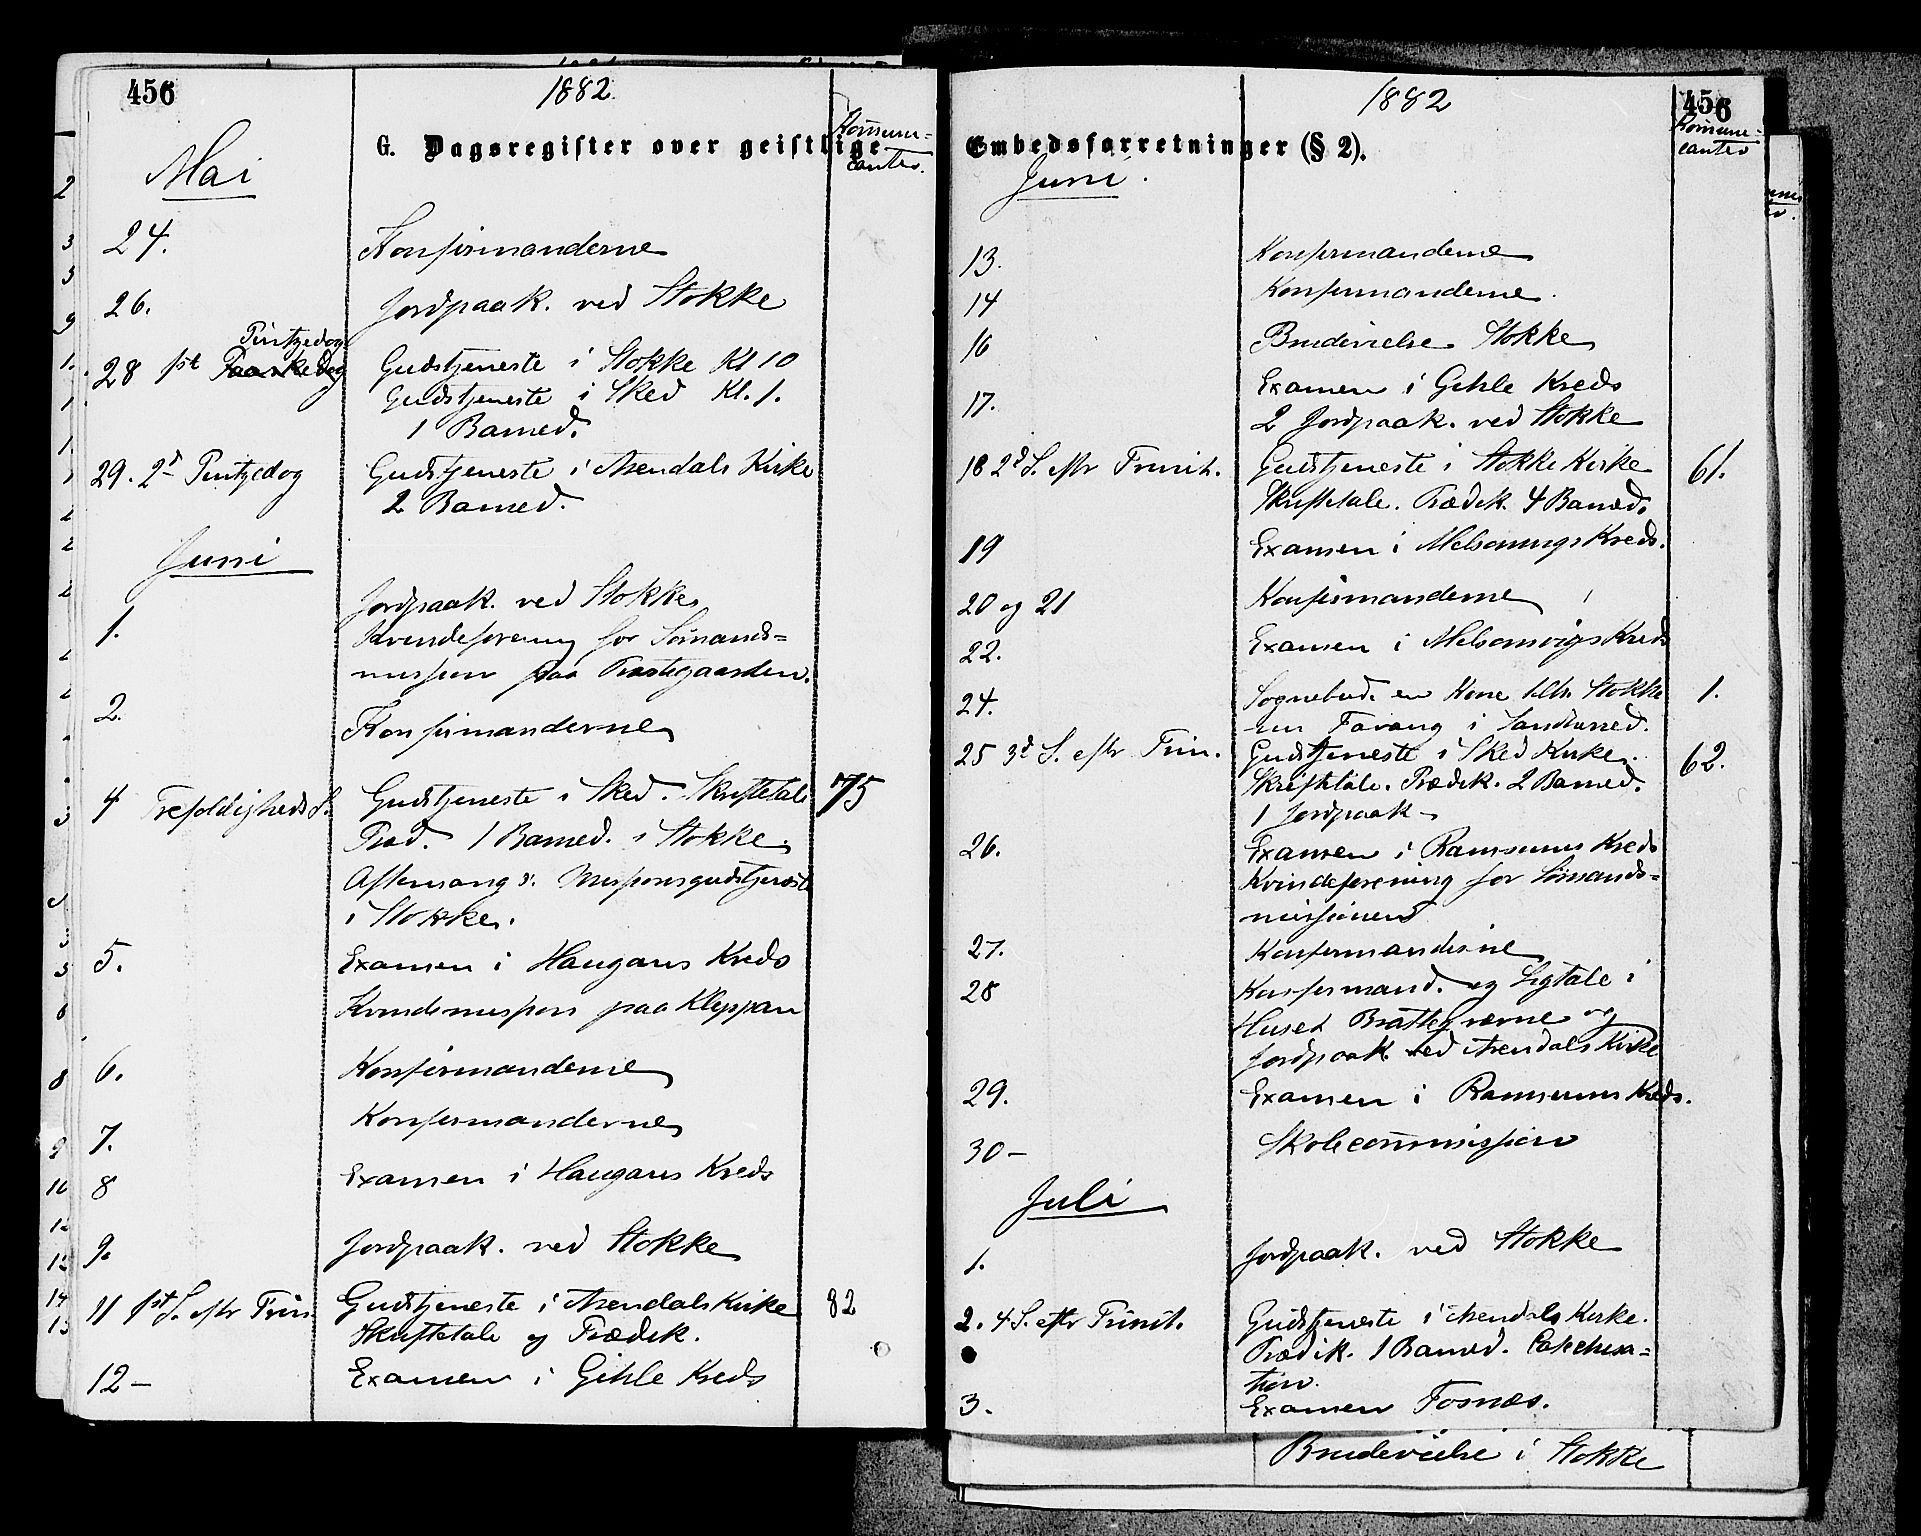 456
1882
G. Dagsregister over geistlige
Kommuni=
canter.
Mai
24. Konfirmanderne
26. Jordpaak. ved Stokke
Pintzedag
28 1st Paaskedag Gudstjeneste i Stokke Kl 10
Gudstjeneste i Sked Kl. 1.
1 Barned.
29. 2d Pintzedag Gudstjeneste i Arendals Kirke
2 Barned.
Juni
1. Jordpaak. ved Stokke
Kvindeforening for Sømands=
mission paa Prestegaarden.
2. Konfirmanderne
4 Trefoldigheds S. Gudstjeneste i Sked. Skriftetale 75
Præd. 1 Barned. i Stokke
Aftensang o: Missionsgudstjeneste
i Stokke.
5. Examen i Haugans Kreds
Kvindemission paa Kleppan
6. Konfirmanderne
7. Konfirmanderne
8 Examen i Haugans Kreds
9. Jordpaak. ved Stokke
11 1st S. eftr Trin. Gudstjeneste i Arendals Kirke 82
Skriftetale og Prædik.
12 — Examen i Gihle Kreds
1882
456
Embedsforretninger (§ 2).
Kommuni=
canter
Juni.
13. Konfirmanderne
14 Konfirmanderne.
16 Brudevielse Stokke
17. Examen i Gihle Kreds
2 Jordpaak. ved Stokke
18 2d S. eftr Trinit. Gudstjeneste i Stokke Kirke 61.
Skriftetale. Prædik. 4 Barned.
19 Examen i Melsomvigs Kreds.
20 og 21 Konfirmanderne
22. Examen i Melsomvigs Kreds
24. Sognebud. en Kone Stokke 1.
Farvang i Sandherred.
25 3d S. eftr Trin. Gudstjeneste i Sked Kirke. 62.
Skriftetale. Prædik. 2 Barned.
1 Jordpaak —
26. Examen i Ramsums Kreds
Kvindeforening for Sømands=
missionen
27. Konfirmanderne
28 Konfirmand. og Ligtale i
Huset Brattegrærne og
Jordpaak. ved Arendals Kirke
29. Examen i Ramsums Kreds.
30 — Skolecommission
Juli
1. Jordpaak. ved Stokke
2. 4 S. eftr Trinit. Gudstjeneste i Arendals Kirke.
Prædik. 1 Barned. Catechisa=
tion.
3. Examen Fosnæs.
Brudevielse i Stokke